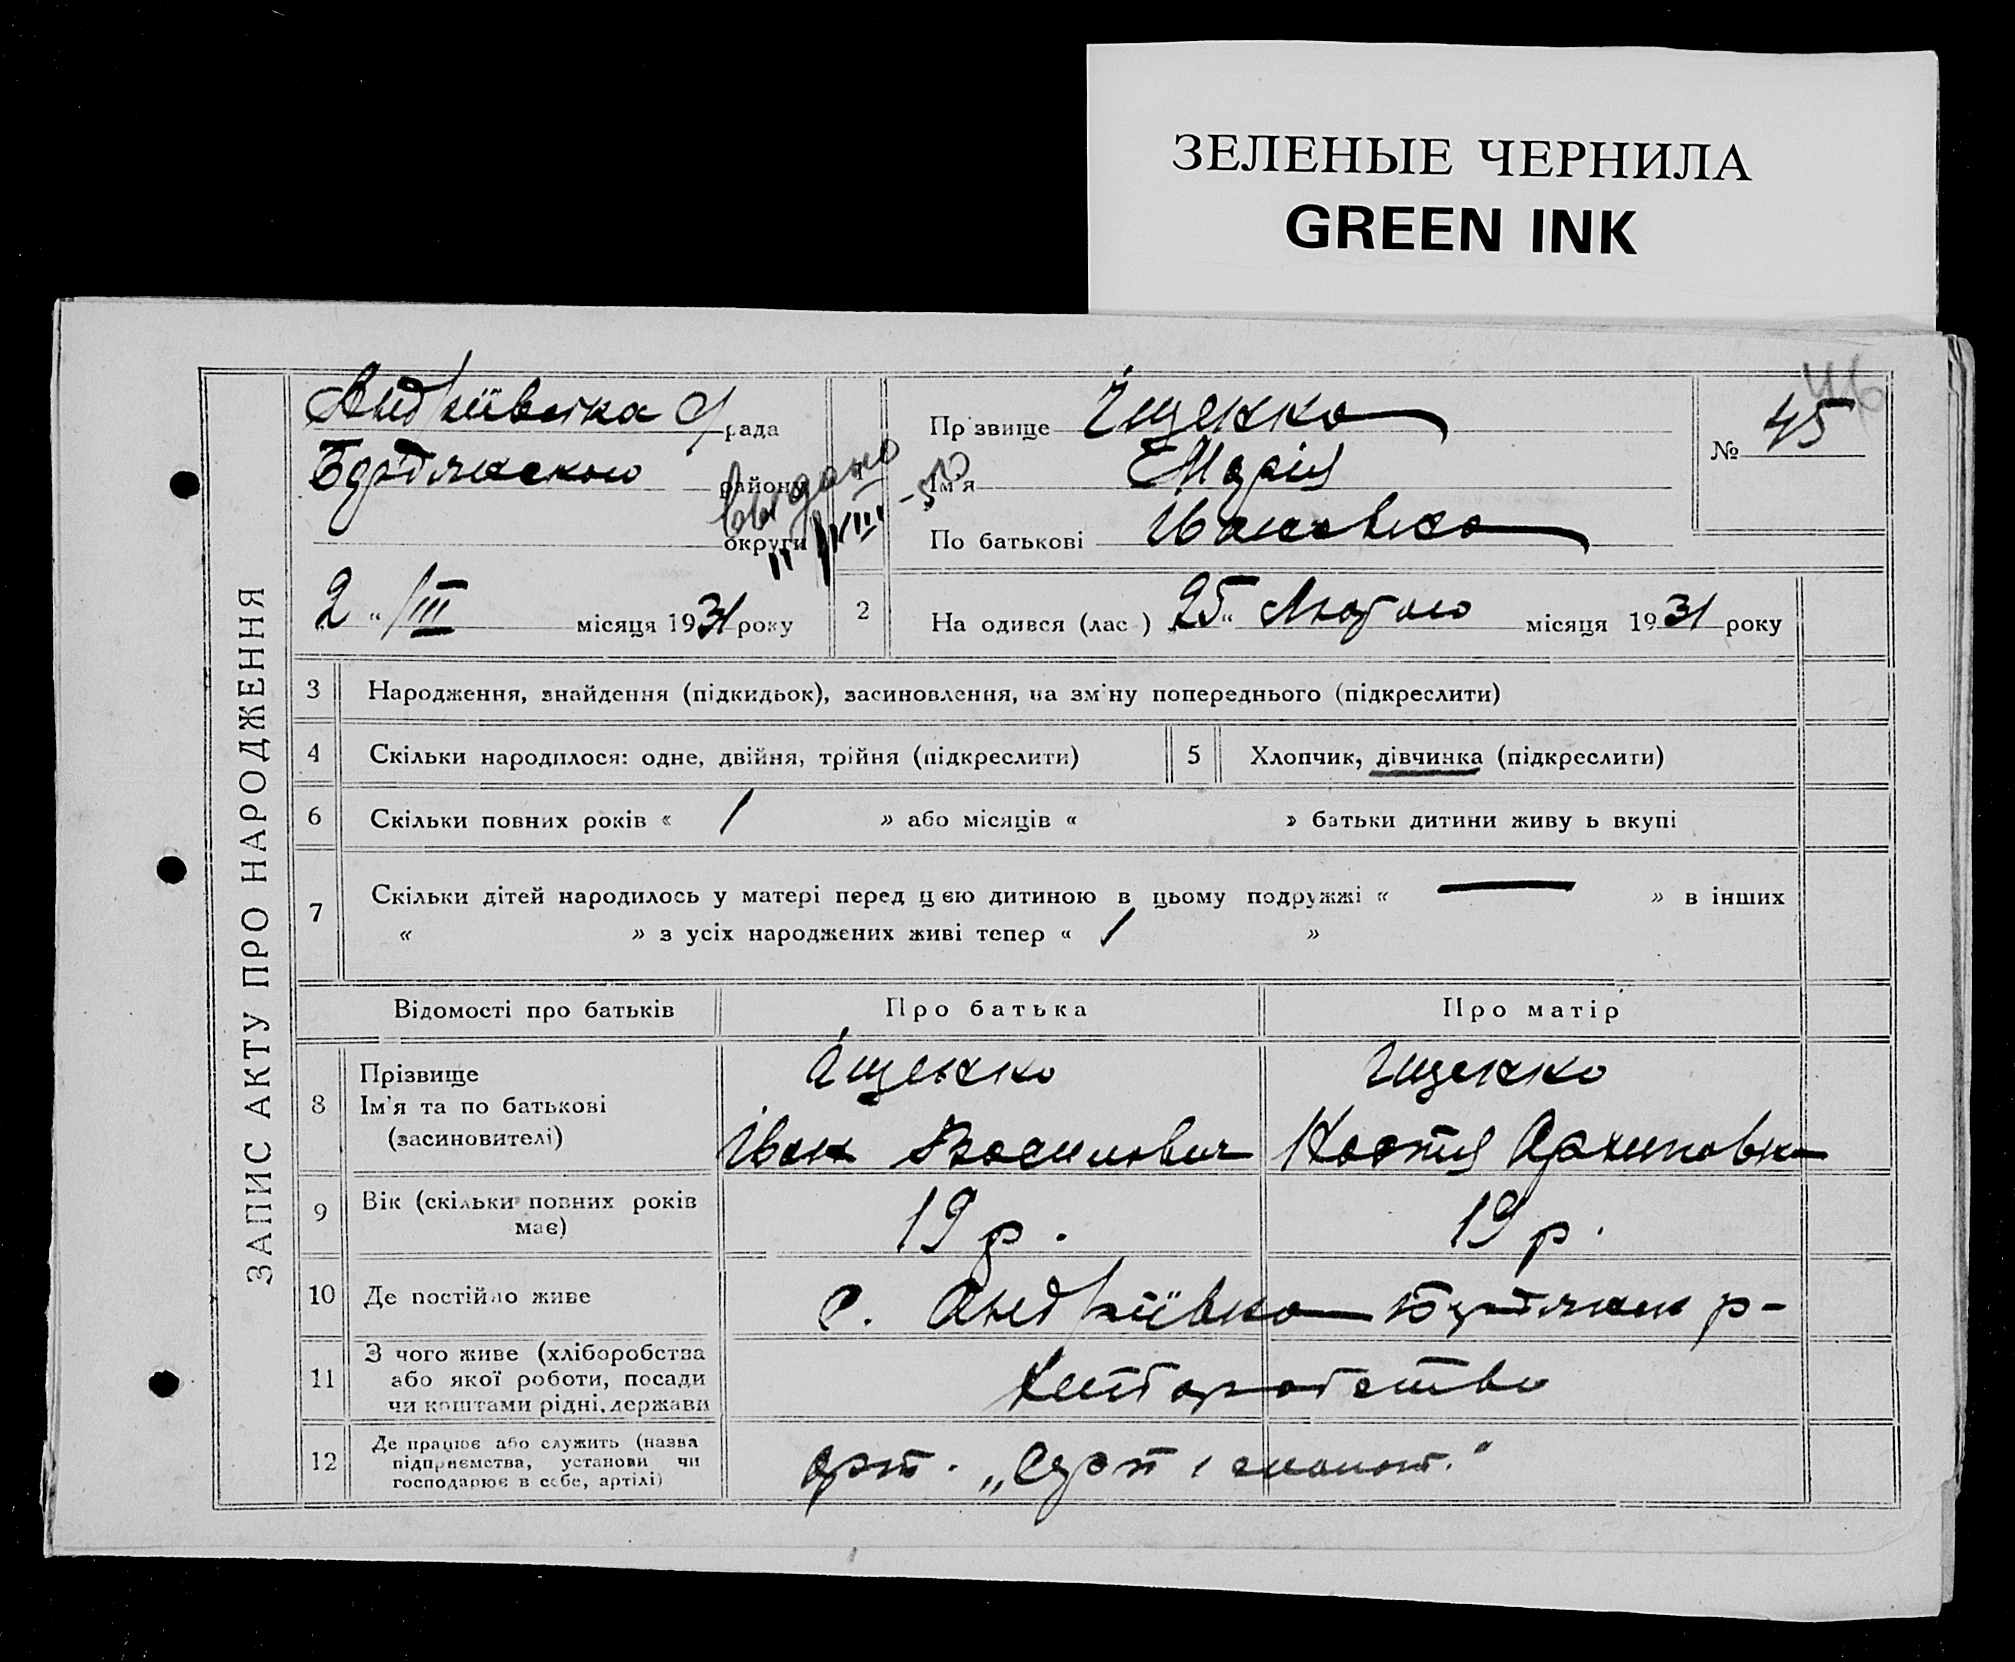 ЗЕЛЕНЫЕ ЧЕРНИЛА
GREEN INK
46
ЗАПИС АКТУ ПРО НАРОДЖЕННЯ
Андріївська С/рада
Бердянского району
округи
видано
2 " III місяця 1931 року
1
Прізвище Іщенко
Ім'я Марія
По батькові Іванівна
№ 45
2 На одився (лас ) 25 " Лютого місяця 1931 року
3 Народження, знайдення (підкидьок), засиновлення, на зміну попереднього (підкреслити)
4 Скільки народилося: одне, двійня, трійня (підкреслити) 5 Хлопчик, дівчинка (підкреслити)
6 Скільки повних років « 1 » або місяців « » батьки дитини живу ь вкупі
7 Скільки дітей народилось у матері перед цією дитиною в цьому подружжі « — » в інших
« » з усіх народжених живі тепер « 1 »
Відомості про батьків Про батька Про матір
8 Прізвище
Ім'я та по батькові
(засиновителі)
Іщенко Іщенко
Іван Василович Настя Архиповна
9 Вік (скільки повних років має) 19 р. 19 р.
10 Де постійно живе с. Андріївка Бердянск р-
11 З чого живе (хліборобства
або якої роботи, посади
чи коштами рідні, держави
Хліборобство
12 Де працює або служить (назва
підприємства, установи чи
господарює в себе, артілі)
арт. „Серп і молот."